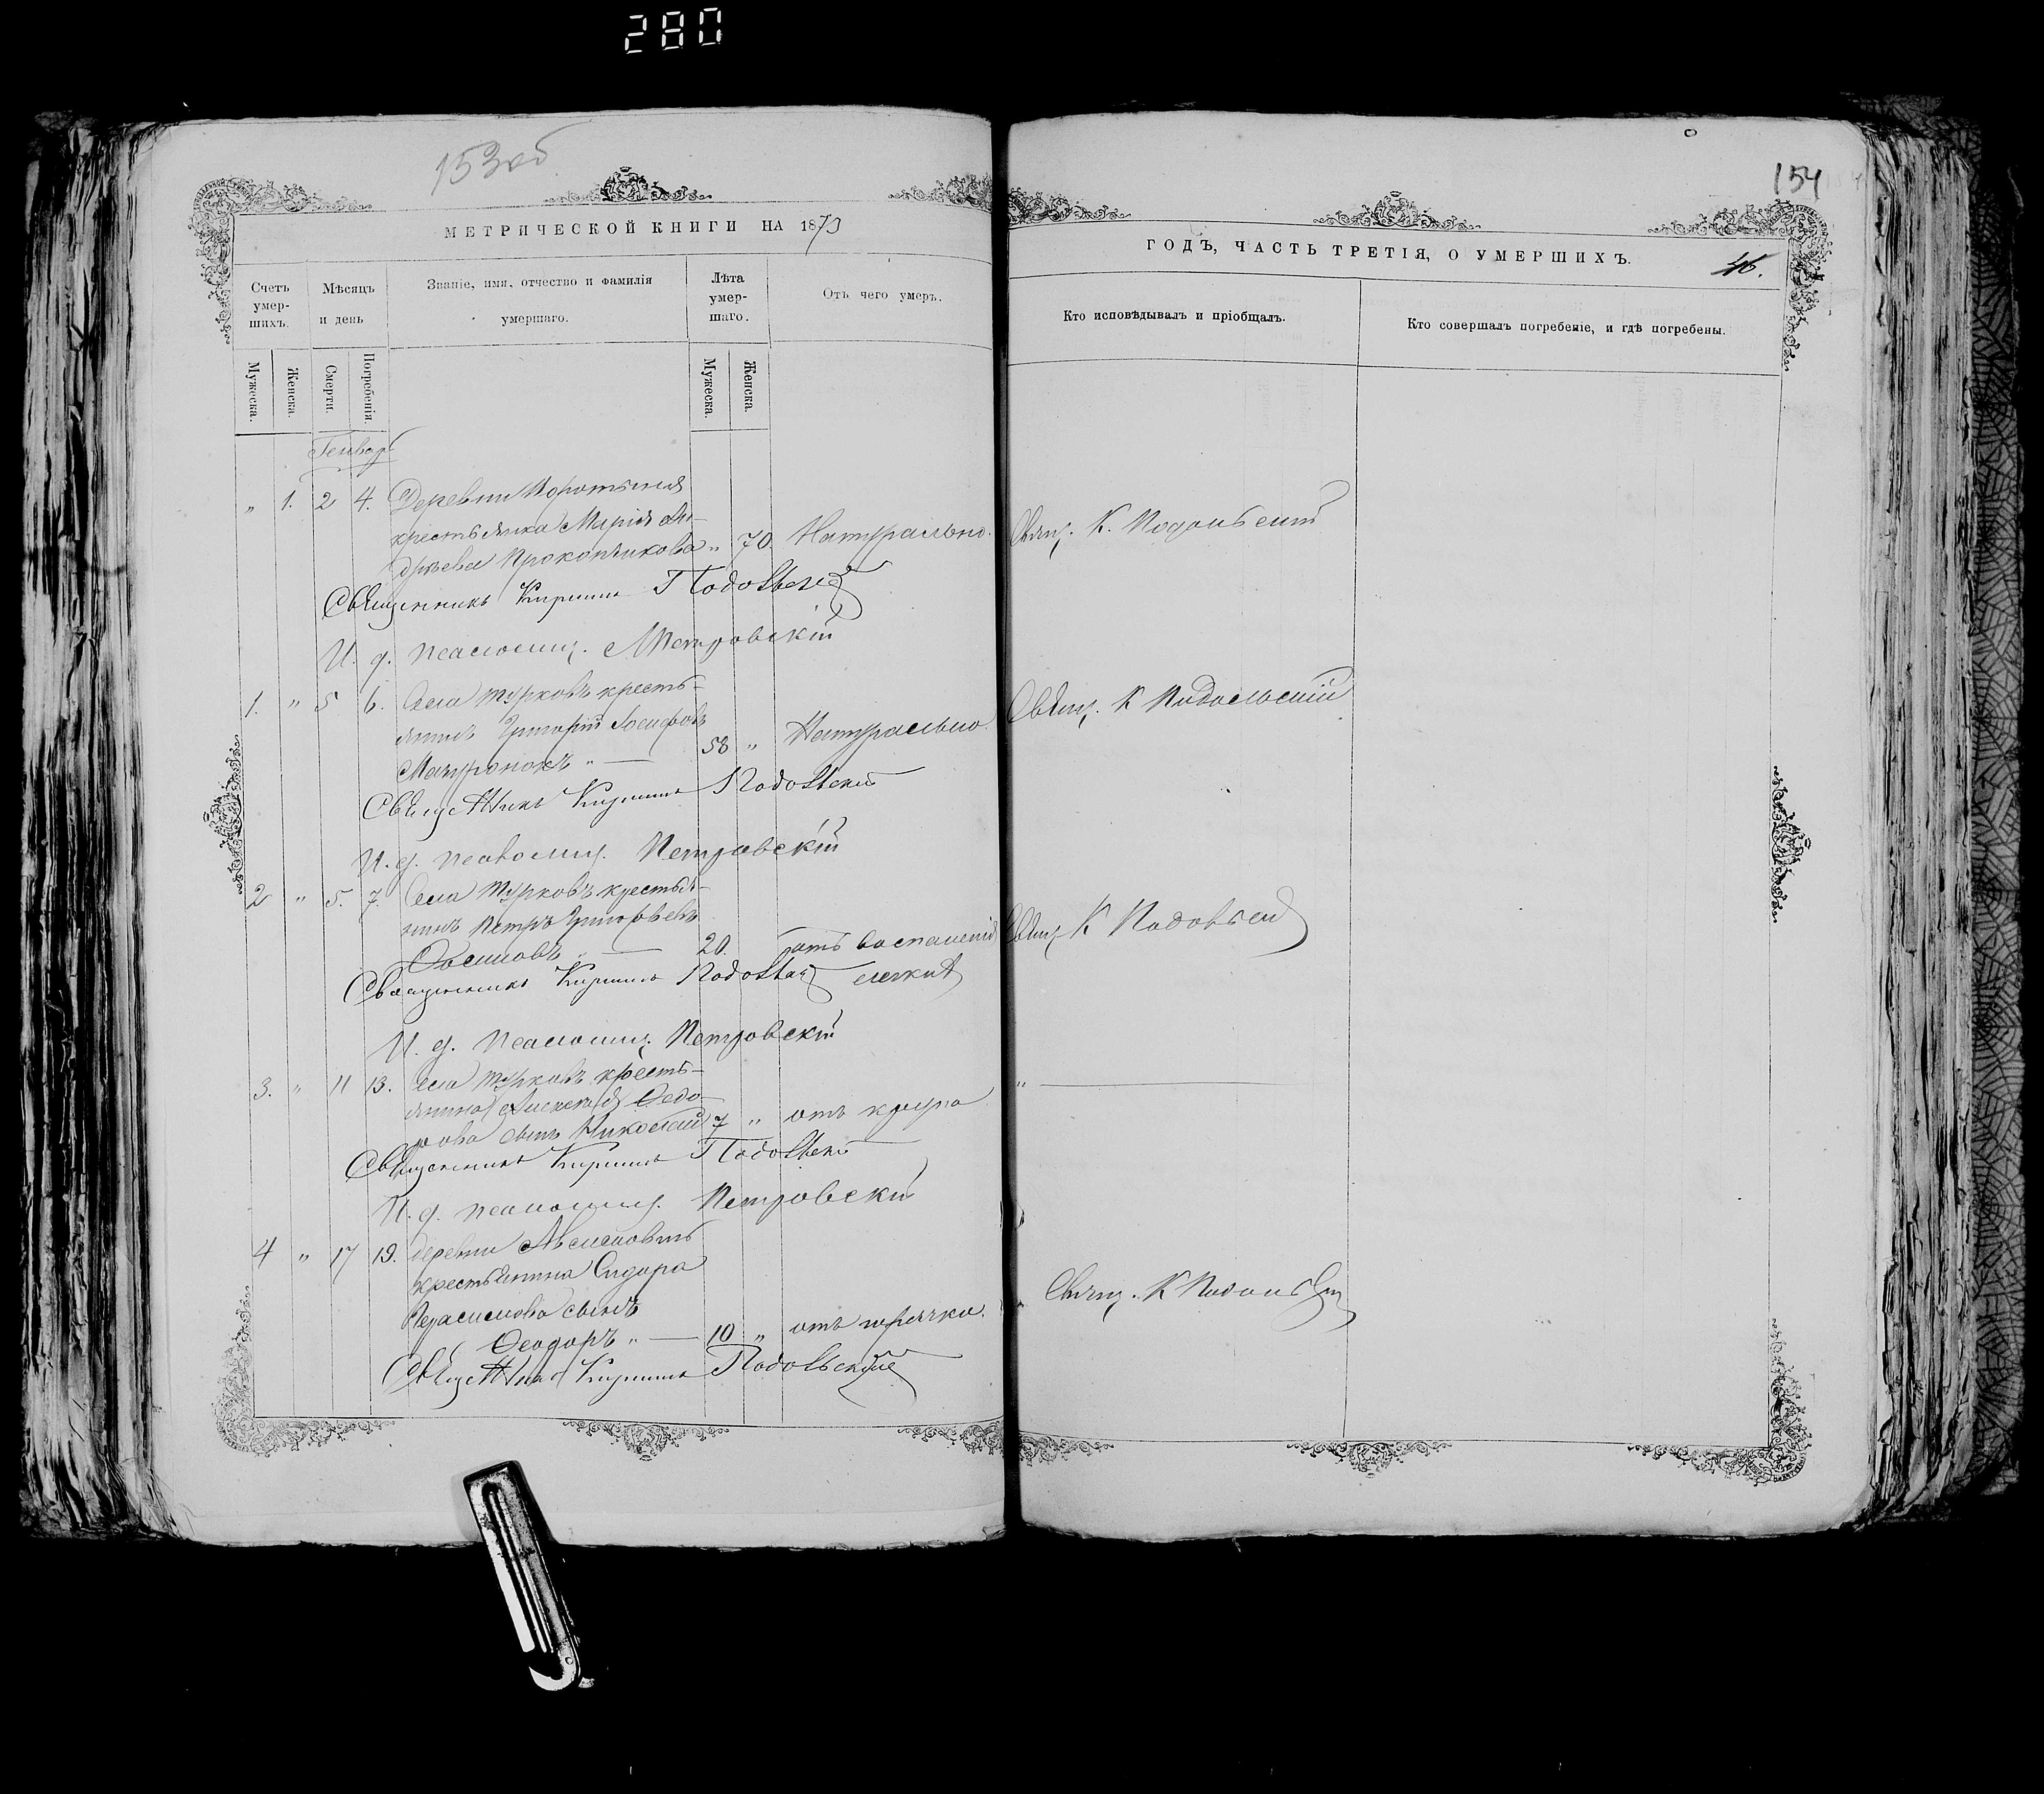 280
153об
МЕТРИЧЕСКОЙ КНИГИ НА 1873
Счетъ умер-шихъ.
Мѣсяцъ и день
Званіе, имя, отчество и фамилія умершаго.
Лѣта умер-шаго.
Отъ чего умеръ.
Мужеска.
Женска.
Смерти.
Погребенія.
Мужеска.
Женска.
Генварь
" 1. 2 4. Деревни
крестьянка Марія Ан-
дреева Прокопчикова " 70. Натурально.
Священникъ Кириллъ Подольскій
И. д. псаломщ. Петровскій
1. " 5 6. Села Турковъ кресть-
янинъ Григорій Іосифовъ
58 " Натурально.
Священникъ Кириллъ Подольскій
И. д. псаломщ. Петровскій
2 " 5. 7. Села Турковъ крестья-
нинъ Петръ Григорьевъ
20. отъ воспаленія
Священникъ Кириллъ Подольскій легкихъ
И. д. псаломщ. Петровскій
3. " 11 13. Села Турковъ кресть-
янина Алексея Ѳедо-
рова сынъ Николай 7 " отъ крупа
Священникъ Кириллъ Подольскій
И. д. псаломщ. Петровскій
4 " 17 19. деревни
крестьянина Сидора
Герасимова сынъ
Ѳеодоръ " — 10 " отъ горячки.
Священникъ Кириллъ Подольскій
154
ГОДЪ, ЧАСТЬ ТРЕТІЯ, О УМЕРШИХЪ.
46.
Кто исповѣдывалъ и пріобщалъ.
Кто совершалъ погребеніе, и гдѣ погребены.
Свящ. К. Подольскій
Свящ. К Подольскій
Свящ. К Подольскій
" —
Свящ. К Подольскій